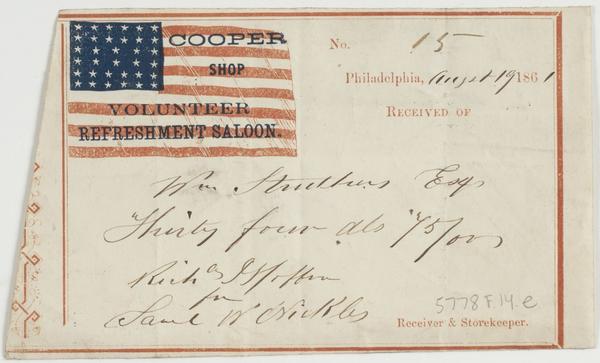 COOPER
SHOP
VOLUNTEER
REFRESHMENT SALOON.
No. 15
Philadelphia, August 19 1861
RECEIVED OF
Wm Struthers Esq
Thirty four dls 75/00
Richd
for
Saml W Nickles
5778 F 14 e
Receiver & Storekeeper.